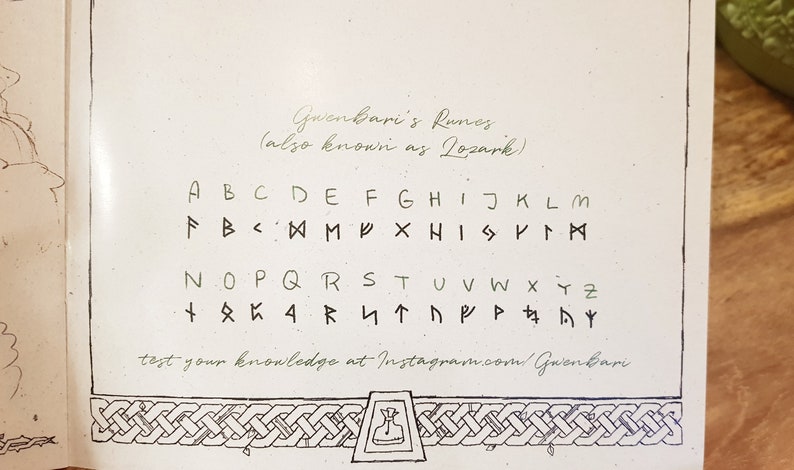 Gwenbari's Runes
(also known as Lozark)
A B C D E F G H I J K L M
ᚨ ᛒ ᚲ ᛞ ᛖ ᚠ ᚷ ᚺ ᛁ ᛃ ᚴ ᛚ ᛗ
N O P Q R S T U V W X Y Z
ᚾ ᛟ ᛈ ᛩ ᚱ ᛋ ᛏ ᚢ ᚡ ᚹ ᛪ ᚤ ᛉ
test your knowledge at Instagram.com/Gwenbari